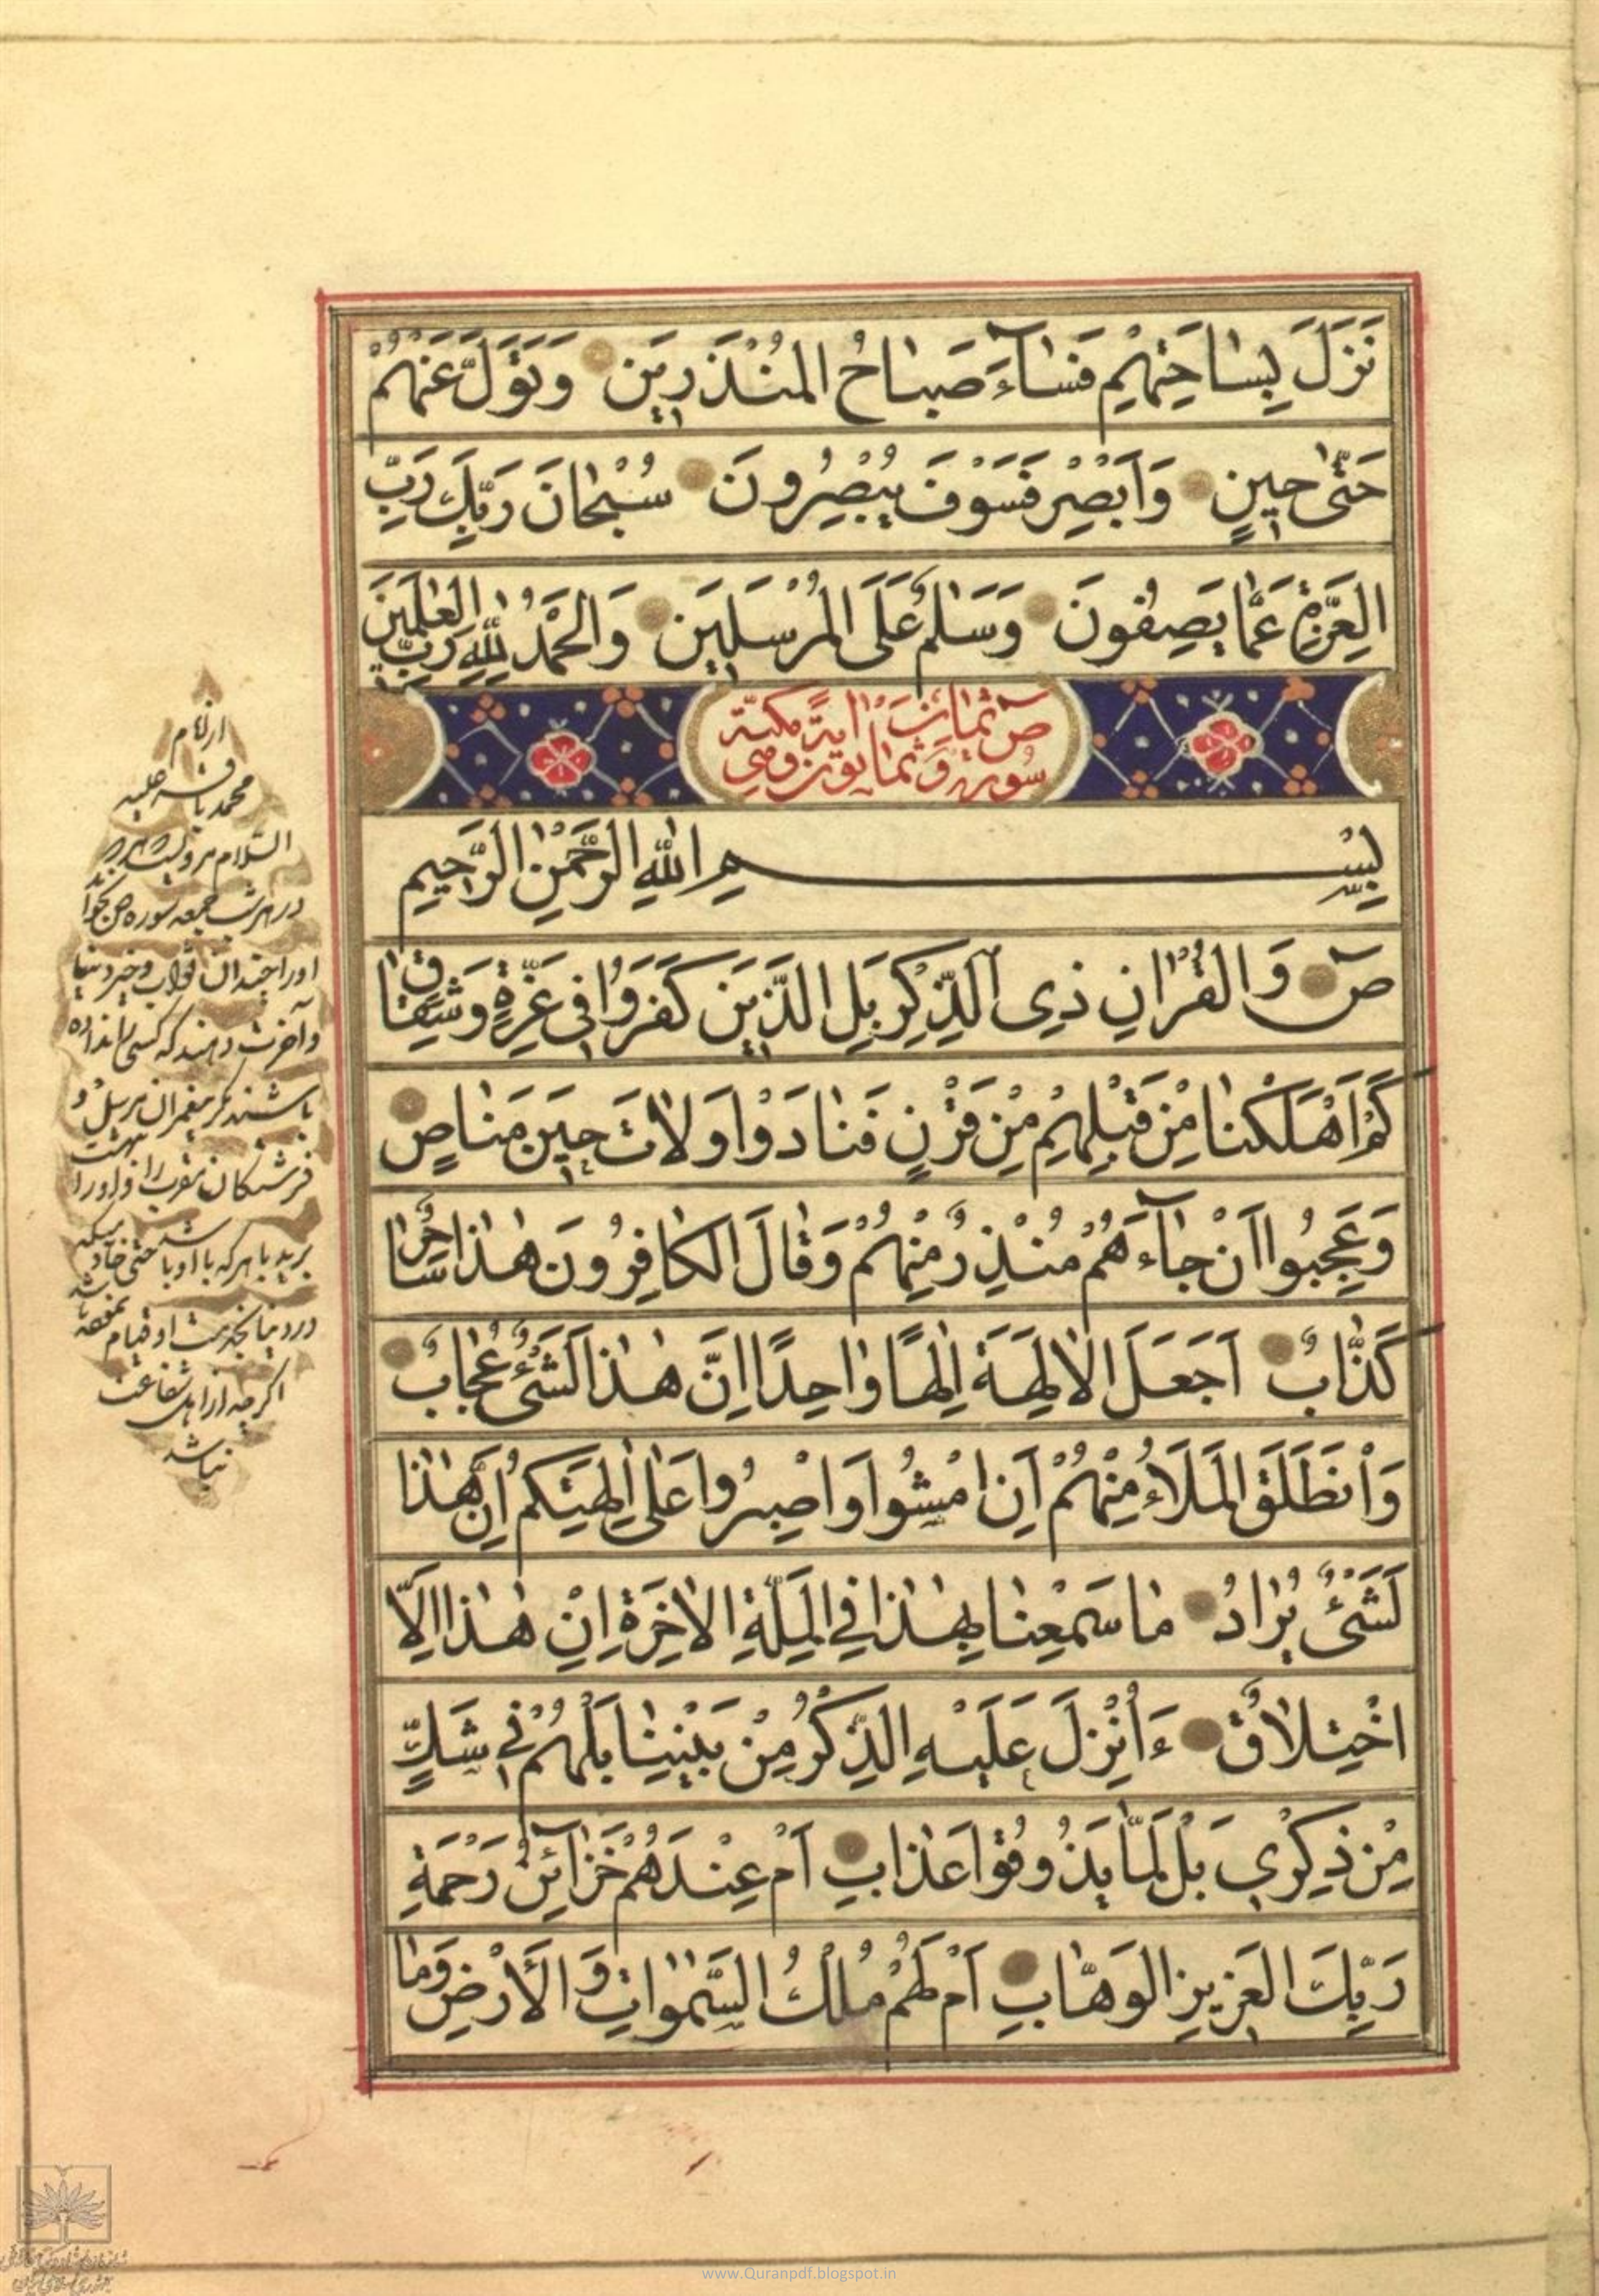 نَزَلَ بِسَاحَتِهِمْ فَسَآءَ صَبَاحُ الْمُنْذَرِينَ وَتَوَلَّ عَنْهُمْ
حَتّٰى حِينٍ وَاَبْصِرْ فَسَوْفَ يُبْصِرُونَ سُبْحَانَ رَبِّكَ رَبِّ
الْعِزَّةِ عَمَّا يَصِفُونَ وَسَلٰمٌ عَلَى الْمُرْسَلِينَ وَالْحَمْدُ لِلّٰهِ رَبِّ الْعٰلَمِينَ
سورة ص ثمان وثمانون اية وهى مكية
بِسْمِ اللّٰهِ الرَّحْمٰنِ الرَّحِيمِ
صٓ وَالْقُرْاٰنِ ذِى الذِّكْرِ بَلِ الَّذِينَ كَفَرُوا فِى عِزَّةٍ وَشِقَاقٍ
كَمْ اَهْلَكْنَا مِنْ قَبْلِهِمْ مِنْ قَرْنٍ فَنَادَوْا وَلَاتَ حِينَ مَنَاصٍ
وَعَجِبُوا اَنْ جَآءَهُمْ مُنْذِرٌ مِنْهُمْ وَقَالَ الْكَافِرُونَ هٰذَا سَاحِرٌ
كَذَّابٌ اَجَعَلَ الْاٰلِهَةَ اِلٰهًا وَاحِدًا اِنَّ هٰذَا لَشَىْءٌ عُجَابٌ
وَانْطَلَقَ الْمَلَاُ مِنْهُمْ اَنِ امْشُوا وَاصْبِرُوا عَلٰى اٰلِهَتِكُمْ اِنَّ هٰذَا
لَشَىْءٌ يُرَادُ مَا سَمِعْنَا بِهٰذَا فِى الْمِلَّةِ الْاٰخِرَةِ اِنْ هٰذَا اِلَّا
اخْتِلَاقٌ ءَاُنْزِلَ عَلَيْهِ الذِّكْرُ مِنْ بَيْنِنَا بَلْ هُمْ فِى شَكٍّ
مِنْ ذِكْرِى بَلْ لَمَّا يَذُوقُوا عَذَابِ اَمْ عِنْدَهُمْ خَزَآئِنُ رَحْمَةِ
رَبِّكَ الْعَزِيزِ الْوَهَّابِ اَمْ لَهُمْ مُلْكُ السَّمٰوَاتِ وَالْاَرْضِ وَمَا
از امام
محمد باقر عليه
السلام مرويست هر
در هر شب جمعه سوره ص بخواند
اورا چندان ثواب و خير دنيا
و آخرت دهند كه كسى را نداده
باشند مگر پيغمبران مرسل و
فرشتگان مقرب را و اورا بهشت
برند با هر كه با او باشد حتى خادمى كه
در دنيا بخدمت او قيام نموده باشد
اگرچه از اهل شفاعت
نباشد
www.Quranpdf.blogspot.in